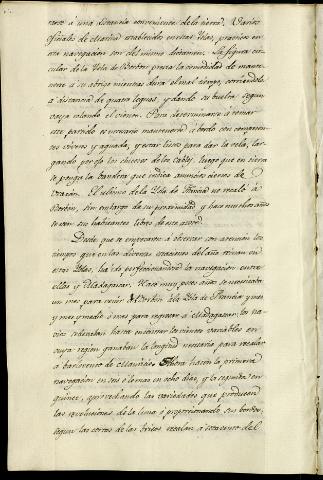 nerse a una distancia conveniente de la tierra. Varios
oficiales de Marina establecidos en estas Yslas, practicos en
esta navegacion son del mismo dictamen. La figura cir-
cular de la Ysla de Borbon presta la comodidad de mante-
nerse a su abrigo mientras dura el mal tiempo, corriendola
a distancia de quatro leguas, y dando su buelta segun
vaya rolando el viento. Para determinarse á tomar
este partido es necesario mantenerse á bordo con competen-
tes viveres y aguada, y estar listos para dar la vela, lar-
gando por ojo los chicotes de los cables, luego que en tierra
se ponga la bandera que indica anuncios ciertos de
uracan. El ultimo de la Ysla de Francia no recaló á
Borbon, sin embargo de su proximidad y hace muchos años
se ven sus habitantes libres de este azote.
Desde que se empezaron á observar con atencion los
tiempos que en las diversas estaciones del año reinan en
estas Yslas, ha ido perfeccionandose la navegacion entre
ellas y Madagascar. Hace muy pocos años se necesitaba
un mes para venir de Borbon á la Ysla de Francia y mes
y mes y medio ó mas para regresar de Madagascar: los na-
vios se dexaban hasta encontrar los vientos variables en
cuya region ganaban la longitud necesaria para recalar
á barlovento de Mauricius. Ahora hacen la primera
navegacion en seis ó lo mas en ocho dias, y la segunda en
quince, aprovechando las variedades que producen
las revoluciones de la luna ó proporcionando sus bordos,
segun las horas de las brisas recalan á sotavento del